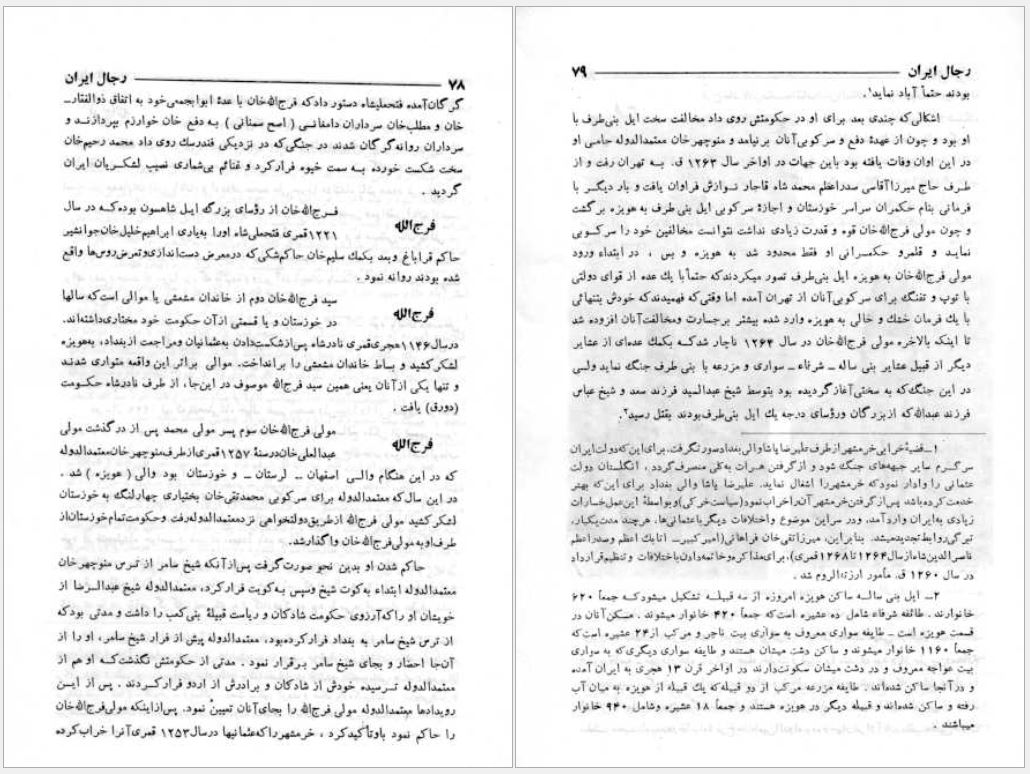 ۷۸ رجال ایران
گرگان آمده فتحعلیشاه دستور داد که فرج‌الله‌خان با عدهٔ ابوابجمعی خود به اتفاق ذوالفقار-
خان و مطلب‌خان سرداران دامغانی ( اصح سمنانی ) به دفع خان خوارزم بپردازند و
سرداران روانه گرگان شدند در جنگی‌که در نزدیکی فندرسك روی داد محمد رحیم‌خان
سخت شکست خورده به سمت خیوه فرار کرد و غنائم بی‌شماری نصیب لشکریان ایران
گردید .
فرج‌الله
فرج‌الله‌خان از رؤسای بزرگ ایل شاهسون بوده‌که در سال
۱۲۲۱ قمری فتحعلی‌شاه اورا به‌یاری ابراهیم خلیل‌خان جوانشیر
حاکم قراباغ وبعد بکمك سلیم‌خان حاکم‌شکی که درمعرض دست‌اندازی‌وتعرض روس‌ها واقع
شده بودند روانه نمود .
فرج‌الله
سید فرج‌الله‌خان دوم از خاندان مشعشی یا موالی است‌که سالها
در خوزستان و یا قسمتی ازآن حکومت خود مختاری‌داشته‌اند.
درسال۱۱۴۶هجری‌قمری نادرشاه پس‌ازشکست‌دادن به‌عثمانیان‌ومراجعت ازبغداد، به‌هویزه
لشکر کشید و بساط خاندان مشعشی را برانداخت. موالی براثر این واقعه متواری شدند
و تنها یکی ازآنان یعنی همین سید فرج‌الله موصوف در این‌جا، از طرف نادرشاه حکومت
(دورق) یافت .
فرج‌الله
مولی فرج‌الله‌خان سوم پسر مولی محمد پس از درگذشت مولی
عبدالعلی‌خان درسنهٔ ۱۲۵۷قمری‌ازطرف‌منوچهرخان‌معتمدالدوله
که در این هنگام والی اصفهان ـ لرستان ـ و خوزستان بود والی ( هویزه ) شد .
در این سال‌که معتمدالدوله برای سرکوبی محمدتقی‌خان بختیاری چهارلنگ به خوزستان
لشکر کشید مولی فرج‌الله ازطریق‌دولتخواهی نزدمعتمدالدوله‌رفت وحکومت‌تمام‌خوزستان‌از
طرف‌اوبه‌مولی‌فرج‌الله‌خان واگذارشد.
حاکم شدن او بدین نحو صورت‌گرفت پس‌ازآنکه شیخ سامر از ترس منوچهرخان
معتمدالدوله ابتداء به‌کوت شیخ وسپس به‌کویت فرارکرد، معتمدالدوله شیخ عبدالرضا از
خویشان او راکه‌آرزوی حکومت شادکان و ریاست قبیلهٔ بنی‌کعب را داشت و مدتی بودکه
از ترس شیخ سامر به بغداد فرار کرده‌بود، معتمدالدوله پیش از فرار شیخ سامر، او را از
آن‌جا احضار و بجای شیخ سامر برقرار نمود . مدتی از حکومتش نگذشت‌که او هم از
معتمدالدوله ترسیده خودش از شادکان و برادرش از اردو فرار کردند . پس از این
رویدادها معتمدالدوله مولی فرج‌الله را بجای‌آنان تعیین نمود. پس‌ازاینکه مولی‌فرج‌الله‌خان
را حاکم نمود باوتأکیدکرد ، خرمشهرراکه‌عثمانیها درسال۱۲۵۳ قمری‌آنرا خراب‌کرده
رجال ایران ۷۹
بودند حتماً آباد نماید¹.
اشکالی‌که چندی بعد برای او در حکومتش روی داد مخالفت سخت ایل بنی‌طرف با
او بود و چون از عهدهٔ دفع و سرکوبی‌آنان برنیامد و منوچهرخان معتمدالدوله حامی او
در این اوان وفات یافته بود باین جهات در اواخر سال ۱۲۶۳ ق. به تهران رفت و از
طرف حاج میرزاآقاسی صدراعظم محمد شاه قاجار نوازش فراوان یافت و بار دیگر با
فرمانی بنام حکمران سراسر خوزستان و اجازهٔ سرکوبی ایل بنی‌طرف به هویزه برگشت
و چون مولی فرج‌الله‌خان قوه و قدرت زیادی نداشت نتوانست مخالفین خود را سرکوبی
نماید و قلمرو حکمرانی او فقط محدود شد به هویزه و بس ، در ابتداء ورود
مولی فرج‌الله‌خان به هویزه ایل بنی‌طرف تصور میکردندکه حتماً با یك عده از قوای دولتی
با توپ و تفنگ برای سرکوبی‌آنان از تهران آمده اما وقتی‌که فهمیدندکه خودش بتنهائی
با یك فرمان خشك و خالی به هویزه وارد شده بیشتر برجسارت ومخالفت‌آنان افزوده شد
تا اینکه بالاخره مولی فرج‌الله‌خان در سال ۱۲۶۴ ناچار شدکه بکمك عده‌ای از عشایر
دیگر از قبیل عشایر بنی ساله ـ شرفاء ـ سواری و مزرعه با بنی طرف جنگ نماید ولی
در این جنگ‌که به سختی‌آغازگردیده بود بتوسط شیخ عبدالسید فرزند سعد و شیخ عباس
فرزند عبدالله‌که ازبزرگان ورؤسای درجه یك ایل بنی‌طرف‌بودند بقتل رسید².
۱ـ قضیهٔ خرابی خرمشهرازطرف علیرضا پاشا والی بغداد صورتگرفت، برای‌این‌که‌دولت‌ایران
سرگرم سایر جبهه‌های جنگ شود و ازگرفتن هرات به‌کلی منصرف‌گردد ، انگلستان دولت
عثمانی را وادار نمودکه خرمشهررا اشغال نماید. علیرضا پاشا والی بغداد برای این‌که بهتر
خدمت‌کرده‌باشد پس‌ازگرفتن‌خرمشهر آن‌راخراب‌نمود(سیاست‌خرکی)وبواسطهٔ این‌عمل‌خسارات
زیادی به‌ایران واردآمد، ودر سراین موضوع واختلافات دیگر باعثمانی‌ها، هرچند مدت‌یکبار،
تیرگی‌روابط‌تجدیدمیشد. بنابراین، میرزاتقی‌خان فراهانی(امیرکبیر_ اتابك اعظم وصدراعظم
ناصرالدین‌شاه‌ازسال۱۲۶۴تا۱۲۶۸قمری)،برای‌مذاکره‌وخاتمه‌دادن‌باختلافات و تنظیم‌قرارداد
در سال ۱۲۶۰ ق. مأمور ارزنةالروم شد .
۲ـ ایل بنی ساله ساکن هویزه امروزه از سه قبیله تشکیل میشودکه جمعاً ۶۲۰
خانوارند . طائفه شرفاء شامل ده عشیره است‌که جمعاً ۴۲۰ خانوار میشوند . مسکن آنان در
قسمت هویزه است ـ طایفه سواری معروف به سواری بیت ناجر و مرکب از۲۴ عشیره است‌که
جمعاً ۱۱۶۰ خانوار میشوند و ساکن دشت میشان هستند و طایفه سواری دیگری‌که به سواری
بیت عواجه معروف و در دشت میشان سکونت‌دارند در اواخر قرن ۱۳ هجری به ایران آمده
و درآنجا ساکن شده‌اند . طایفه مزرعه مرکب از دو قبیله‌که یك قبیله از هویزه به میان آب
رفته و ساکن شده‌اند و قبیله دیگر در هویزه هستند و جمعاً ۱۸ عشیره وشامل ۹۴۰ خانوار
میباشند .